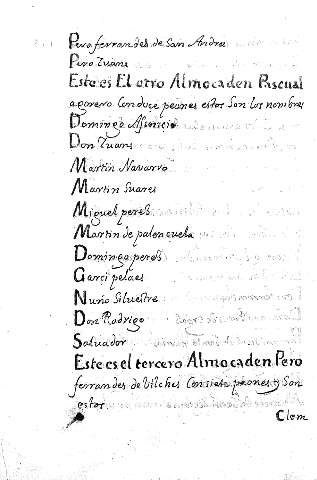 Pero ferrandes de San Andres
Pero Iuans
Este es El otro Almocaden Pascual
agorero Con doce peones estos Son los nombres
Domingo Assensio
Don Iuans
Martin Navarro
Martin Suares
Miguel peres
Martin de palençuela
Domingo peres
Garci pelaes
Nuño Silvestre
Don Rodrigo
Salvador
Este es el tercero Almocaden Pero
ferrandes de Vilches Con siete peones y Son
estos
Clem